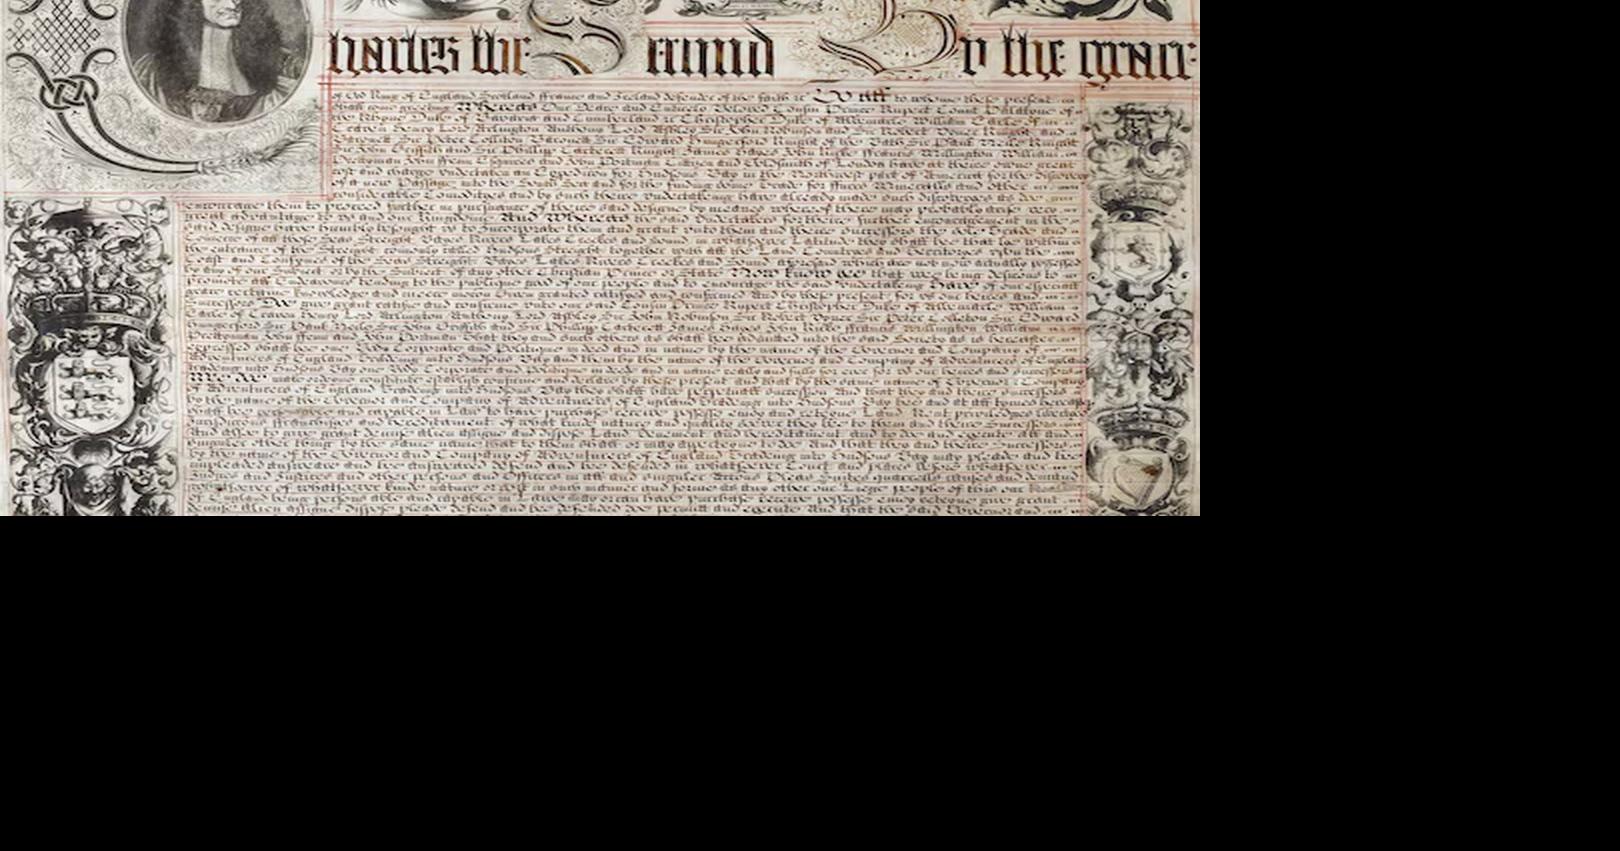 harles the Second By the grace
of God King of England Scotland ffrance and Ireland defender of the faith &c To all to whome these present
shall come greeting Whereas Our Deare and Entirely Beloved Cousin Prince Rupert Count Palatyne of
the Rhyne Duke of Bavaria and Cumberland &c Christopher Duke of Albemarle William Earle of
Craven Henry Lord Arlington Anthony Lord Ashley Sir John Robinson and Sir Robert Vyner Knight and
Baronett Sir Peter Colliton Baronett Sir Edward Hungerford Knight of the Bath Sir Paul Neile Knight
Sir John Griffith and Sir Phillip Carterett Knight James Hayes John Kirke ffrancis Millington William
Prettyman John ffenn Esquires and John Portman Citizen and Goldsmith of London have at theire owne great
cost and charge undertaken an Expedicon for Hudsons Bay in the Northwest part of America for the
of a new Passage into the South Sea and for the finding some Trade for ffurrs Mineralls and other
considerable Comodityes and by such theire undertakeing have already made such discoveryes as
encourage them to proceed further in pursuance of theire said designe by meanes whereof there may probably arise very
great advantage to us and our Kingdome And Whereas the said Undertakers for theire further encouragement in the
said designe have humbly besought us to Incorporate them and grant unto them and theire successors the sole Trade and
Comerce of all those Seas Streight Bayes Rivers Lakes Creekes and Sound in whatsoever Latitude they shall bee that lye within
the entrance of the Streight comonly called Hudsons Streight together with all the Land Countryes and Territoryes upon the
Coast and Confynes of the Seas Streight Bayes Lakes Rivers Creekes and Sound aforesaid which are not now actually possessed
by any of our Subject or by the Subject of any other Christian Prince or State Now know yee that wee being desirous to
promote all Endeavours tending to the publique good of our people and to encourage the said undertakeing Have of our especiall
grace certaine knowledge and meere mocon Given granted ratifyed and confirmed And by these present for us our heires and
Successors Doe give grant ratifie and confirme unto our said Cousin Prince Rupert Christopher Duke of Albemarle William
Earle of Craven Henry Lord Arlington Anthony Lord Ashley Sir John Robinson Sir Robert Vyner Sir Peter Colleton Sir Edward
Hungerford Sir Paul Neile Sir John Griffith and Sir Phillip Carterett James Hayes John Kirke ffrancis Millington William
Prettyman John ffenn and John Portman That they and such others as shall bee admitted into the said Society as is hereafter
expressed shall bee one Body Corporate and Politique in deed and in name by the name of the Governor and Company of
Adventurers of England Tradeing into Hudsons Bay and them by the name of the Governor and Company of Adventurers of England
Tradeing into Hudsons Bay one Body Corporate and Politique in deed and in name really and fully for ever for us our heires and successors
Wee Doe make ordeyne constitute establish confirme and declare by these present and that by the same name of Governor & Company
of Adventurers of England Tradeing into Hudsons Bay they shall have perpetuall succession And that they and theire successors
by the name of the Governor and Company of Adventurers of England Tradeing into Hudsons Bay bee and at all tymes hereafter
shall bee personable and capable in Law to have purchase receive possesse enjoy and reteyne Land Rent priviledges libertyes
Jurisdiccons ffranchises and hereditament of what kinde nature and quality soever they bee to them and theire Successors
And alsoe to give grant demise alien assigne and dispose Land Tenement and hereditament and to doe and execute all and
singuler other thing by the same name that to them shall or may apperteyne to doe And that they and theire Successors
by the name of the Governor and Company of Adventurers of England Tradeing into Hudsons Bay may pleade and bee
impleaded answeare and bee answeared defend and bee defended in whatsoever Court and places before whatsoever
Judges and Justices and other persons and Officers in all and singuler Accons Pleas Suites quarrells causes and demand
whatsoever of whatsoever kinde nature or sort in such manner and forme as any other our Liege people of this our
of England being persons able and capable in Lawe may or can have purchase receive possesse enjoy reteyne give grant
demise alien assigne dispose pleade defend and bee defended doe permitt and execute And that the said Governor and